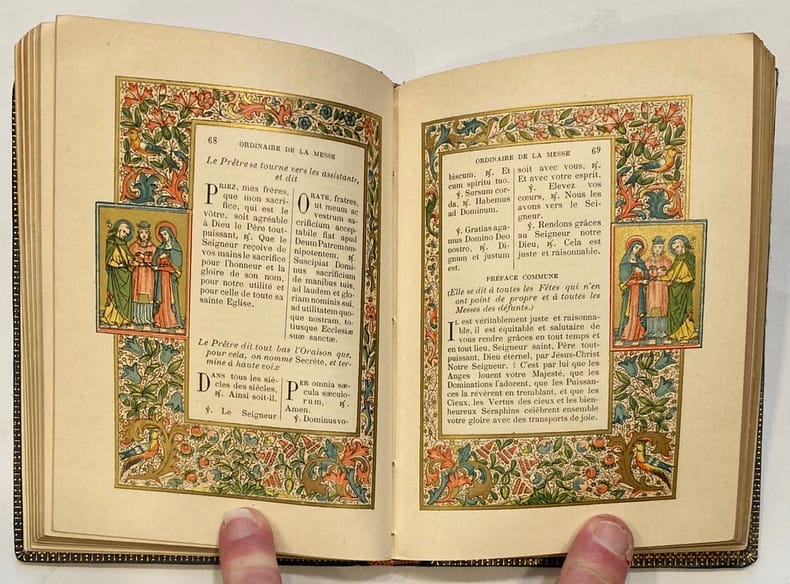 68
ORDINAIRE DE LA MESSE
Le Prêtre se tourne vers les assistants,
et dit
PRIEZ, mes frères,
que mon sacri-
fice, qui est le
vôtre, soit agréable
à Dieu le Père tout-
puissant, ℟. Que le
Seigneur reçoive de
vos mains le sacrifice
pour l'honneur et la
gloire de son nom,
pour notre utilité et
pour celle de toute sa
sainte Eglise.
ORATE, fratres,
ut meum ac
vestrum sa-
crificium accep-
tabile fiat apud
Deum Patrem om-
nipotentem, ℟.
Suscipiat Domi-
nus sacrificium
de manibus tuis,
ad laudem et glo-
riam nominis sui,
ad utilitatem quo-
que nostram, to-
tiusque Ecclesiæ
suæ sanctæ.
Le Prêtre dit tout bas l'Oraison que,
pour cela, on nomme Secrète, et ter-
mine à haute voix
DANS tous les siè-
cles des siècles,
℟. Ainsi soit-il.
℣. Le Seigneur
PER omnia sæ-
cula sæculo-
rum, ℟.
Amen.
℣. Dominus vo-
ORDINAIRE DE LA MESSE
69
biscum, ℟. Et
cum spiritu tuo.
℣. Sursum cor-
da, ℟. Habemus
ad Dominum.
℣. Gratias aga-
mus Domino Deo
nostro, ℟. Di-
gnum et justum
est.
soit avec vous, ℟.
Et avec votre esprit.
℣. Elevez vos
cœurs, ℟. Nous les
avons vers le Sei-
gneur.
℣. Rendons grâces
au Seigneur notre
Dieu, ℟. Cela est
juste et raisonnable.
PRÉFACE COMMUNE
(Elle se dit à toutes les Fêtes qui n'en
ont point de propre et à toutes les
Messes des défunts.)
IL est véritablement juste et raisonna-
ble, il est équitable et salutaire de
vous rendre grâces en tout temps et
en tout lieu, Seigneur saint, Père tout-
puissant, Dieu éternel, par Jésus-Christ
Notre Seigneur. ! C'est par lui que les
Anges louent votre Majesté, que les
Dominations l'adorent, que les Puissan-
ces la révèrent en tremblant, et que les
Cieux, les Vertus des cieux et les bien-
heureux Séraphins célèbrent ensemble
votre gloire avec des transports de joie.